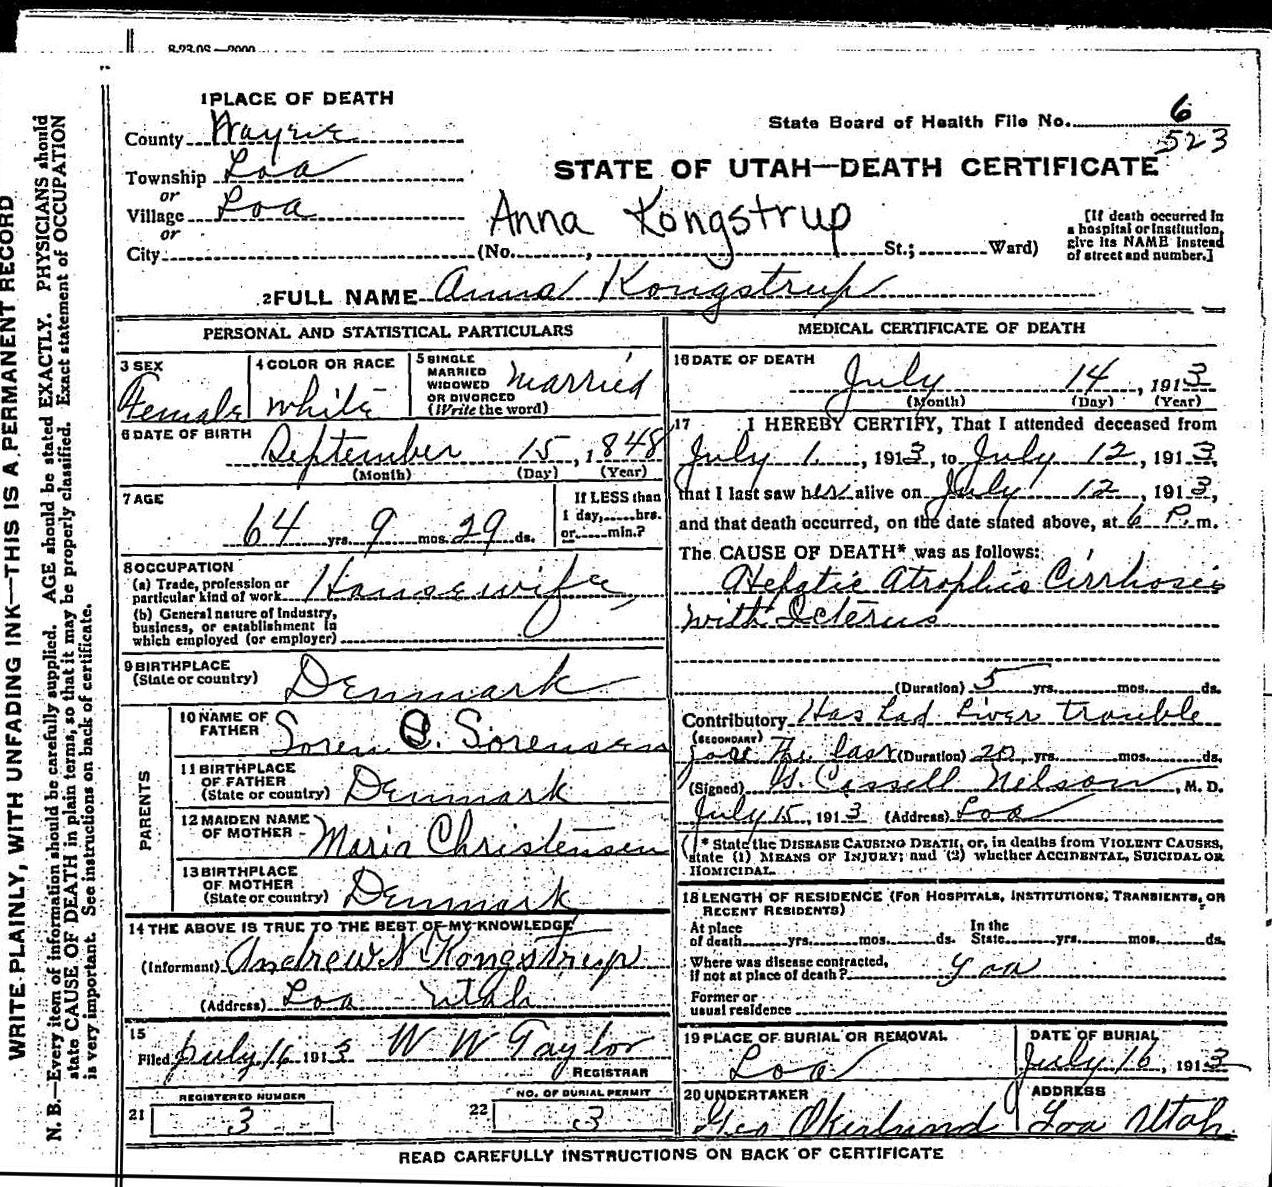 8-23-08—2000
1 PLACE OF DEATH
County Wayne
State Board of Health File No. 6
523
Township Loa
or
Village Loa
or
City
STATE OF UTAH—DEATH CERTIFICATE
Anna Kongstrup
(No. , St.; Ward)
[If death occurred in
a hospital or institution,
give its NAME instead
of street and number.]
2 FULL NAME Anna Kongstrup
PERSONAL AND STATISTICAL PARTICULARS
3 SEX
Female
4 COLOR OR RACE
White
5 SINGLE
MARRIED
WIDOWED
OR DIVORCED
(Write the word)
Married
6 DATE OF BIRTH
September 15, 1848
(Month) (Day) (Year)
7 AGE
64 yrs. 9 mos. 29 ds.
If LESS than
1 day, hrs.
or min.?
8 OCCUPATION
(a) Trade, profession or
particular kind of work Housewife
(b) General nature of Industry,
business, or establishment in
which employed (or employer)
9 BIRTHPLACE
(State or country) Denmark
PARENTS
10 NAME OF
FATHER Soren C. Sorensen
11 BIRTHPLACE
OF FATHER
(State or country) Denmark
12 MAIDEN NAME
OF MOTHER Maria Christensen
13 BIRTHPLACE
OF MOTHER
(State or country) Denmark
14 THE ABOVE IS TRUE TO THE BEST OF MY KNOWLEDGE
(Informant) Andrew N Kongstrup
(Address) Loa Utah
15
Filed July 16 1913 W W Taylor
REGISTRAR
REGISTERED NUMBER
21 3
NO. OF BURIAL PERMIT
22 3
MEDICAL CERTIFICATE OF DEATH
16 DATE OF DEATH
July 14, 1913
(Month) (Day) (Year)
17 I HEREBY CERTIFY, That I attended deceased from
July 1, 1913, to July 12, 1913,
that I last saw her alive on July 12, 1913,
and that death occurred, on the date stated above, at 6 P.m.
The CAUSE OF DEATH* was as follows:
Hepatic Atrophic Cirrhosis
with Icterus
(Duration) 5 yrs. mos. ds.
Contributory Has had Liver trouble
(SECONDARY)
for The last (Duration) 20 yrs. mos. ds.
(Signed) Nelson, M. D.
July 15, 1913 (Address) Loa
* State the DISEASE CAUSING DEATH, or, in deaths from VIOLENT CAUSES,
state (1) MEANS OF INJURY; and (2) whether ACCIDENTAL, SUICIDAL OR
HOMICIDAL.
18 LENGTH OF RESIDENCE (FOR HOSPITALS, INSTITUTIONS, TRANSIENTS, OR
RECENT RESIDENTS)
At place
of death yrs. mos. ds.
In the
State yrs. mos. ds.
Where was disease contracted,
if not at place of death? Loa
Former or
usual residence
19 PLACE OF BURIAL OR REMOVAL
Loa
DATE OF BURIAL
July 16, 1913
20 UNDERTAKER
Geo Okerlund
ADDRESS
Loa Utah
READ CAREFULLY INSTRUCTIONS ON BACK OF CERTIFICATE
WRITE PLAINLY, WITH UNFADING INK—THIS IS A PERMANENT RECORD
N. B.—Every item of information should be carefully supplied. AGE should be stated EXACTLY. PHYSICIANS should
state CAUSE OF DEATH in plain terms, so that it may be properly classified. Exact statement of OCCUPATION
is very important. See instructions on back of certificate.